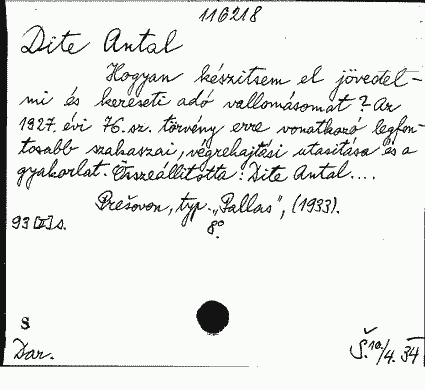 116218
Dite Antal
Hogyan készitsem el jövedel-
mi és kereseti adó vallomásomat? Az
1927. évi 76. sz. törvény erre vonatkozó legfon-
tosabb szakaszai, végrehajtási utasitása és a
gyakorlat. Összeállitotta: Dite Antal....
Prešovon, typ. „Pallas", (1933).
93 [2] s. 8°.
S
Dar. Š. 10./4. 34